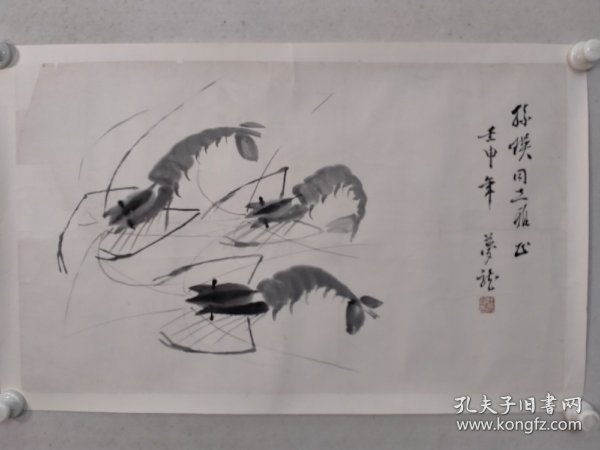 孫燦同志指正
壬申年 夢龍
孔夫子旧书网
www.kongfz.com